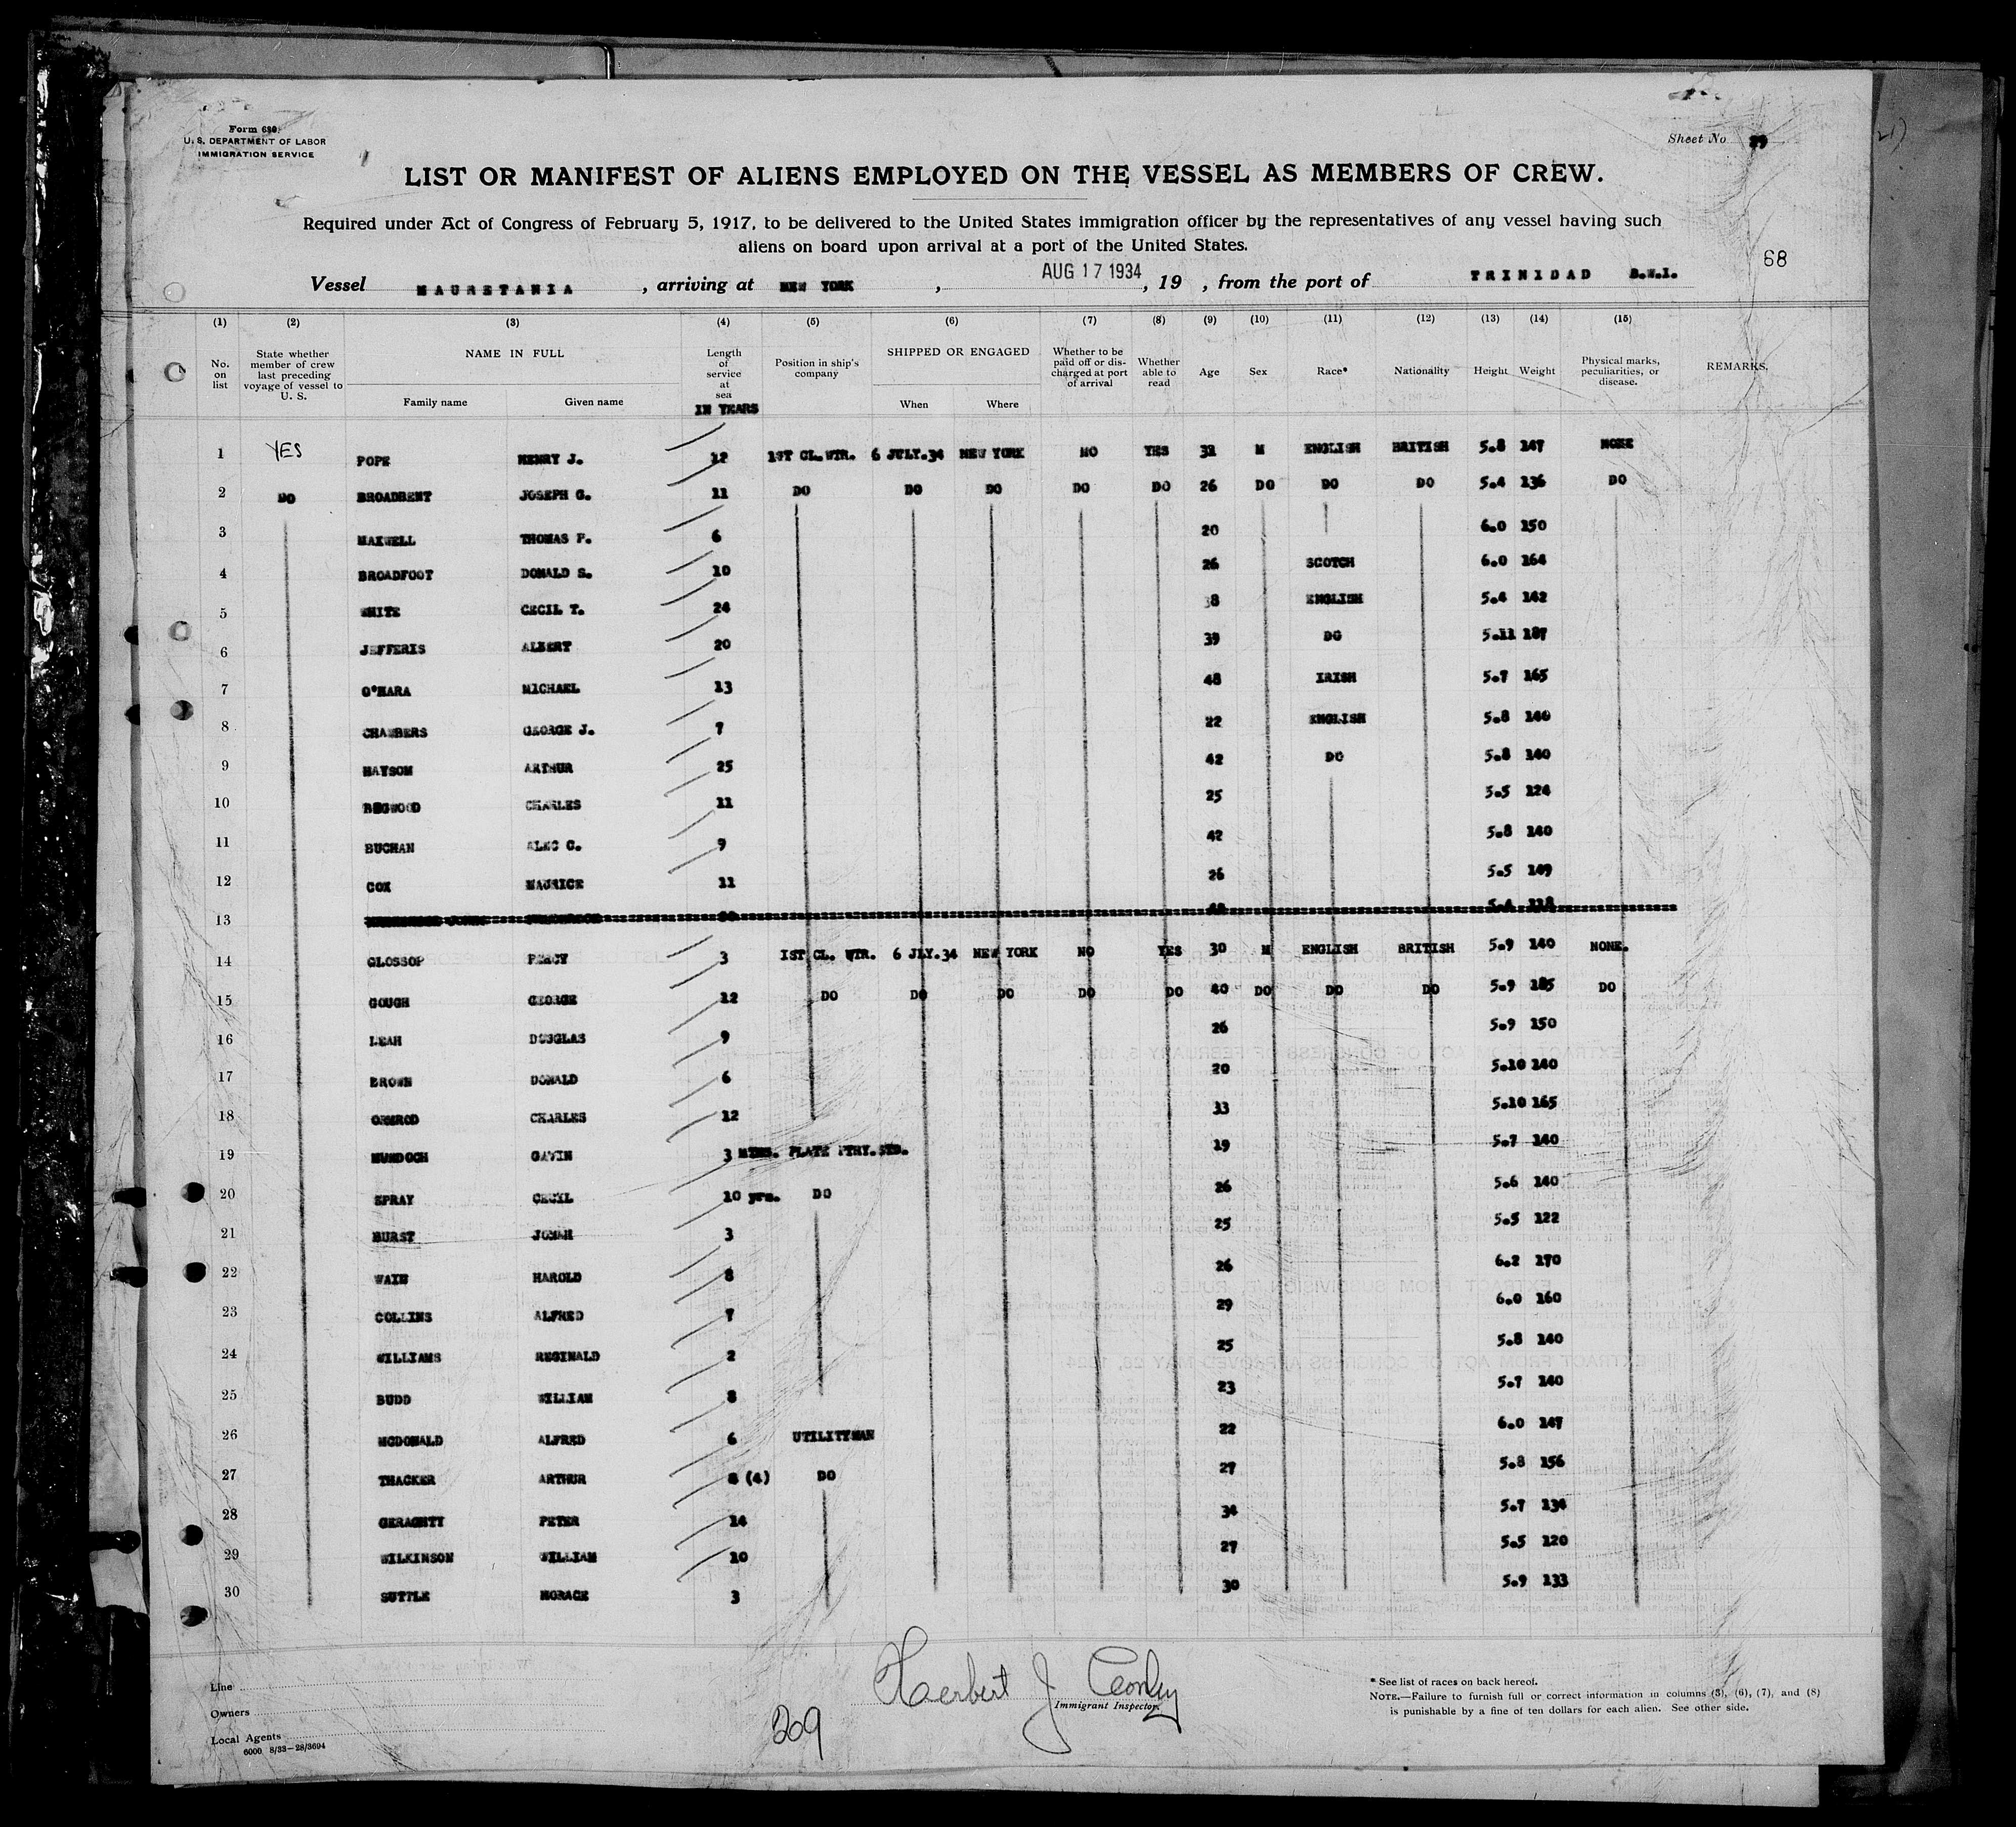 Form 680
U. S. DEPARTMENT OF LABOR
IMMIGRATION SERVICE
Sheet No
LIST OR MANIFEST OF ALIENS EMPLOYED ON THE VESSEL AS MEMBERS OF CREW.
Required under Act of Congress of February 5, 1917, to be delivered to the United States immigration officer by the representatives of any vessel having such
aliens on board upon arrival at a port of the United States.
68
Vessel MAURETANIA , arriving at NEW YORK , AUG 17 1934 , 19 , from the port of TRINIDAD B.W.I.
(1) (2) (3) (4) (5) (6) (7) (8) (9) (10) (11) (12) (13) (14) (15)
No. on list State whether member of crew last preceding voyage of vessel to U. S. NAME IN FULL Family name Given name Length of service at sea IN YEARS Position in ship's company SHIPPED OR ENGAGED When Where Whether to be paid off or discharged at port of arrival Whether able to read Age Sex Race* Nationality Height Weight Physical marks, peculiarities, or disease. REMARKS.
1 YES POPE HENRY J. 12 1ST CL.WTR. 6 JULY.34 NEW YORK NO YES 31 M ENGLISH BRITISH 5.8 147 NONE
2 DO BROADBENT JOSEPH G. 11 DO DO DO DO DO 26 DO DO DO 5.4 136 DO
3 MAXWELL THOMAS F. 6 20 6.0 150
4 BROADFOOT DONALD S. 10 26 SCOTCH 6.0 164
5 WHITE CECIL T. 24 38 ENGLISH 5.4 142
6 JEFFERIS ALBERT 20 39 DO 5.11 187
7 O'HARA MICHAEL 13 48 IRISH 5.7 165
8 CHAMBERS GEORGE J. 7 22 ENGLISH 5.8 140
9 HAYSOM ARTHUR 25 42 DO 5.8 140
10 CHARLES 11 25 5.5 124
11 BUCHAN ALEC C. 9 42 5.8 140
12 COX MAURICE 11 26 5.5 149
13
14 GLOSSOP PERCY 3 1ST CL. WTR. 6 JLY.34 NEW YORK NO YES 30 M ENGLISH BRITISH 5.9 140 NONE.
15 GOUGH GEORGE 12 DO DO DO DO DO 40 DO DO DO 5.9 185 DO
16 LEAH DOUGLAS 9 26 5.9 150
17 BROWN DONALD 6 20 5.10 140
18 ORMROD CHARLES 12 33 5.10 165
19 MURDOCH GAVIN 3 MTHS. PLATE PTRY.STD. 19 5.7 140
20 SPRAY CECYL 10 yrs. DO 26 5.6 140
21 BURST 3 25 5.5 122
22 HAROLD 8 26 6.2 170
23 COLLINS ALFRED 7 29 6.0 160
24 WILLIAMS REGINALD 2 25 5.8 140
25 BUDD WILLIAM 8 23 5.7 140
26 MCDONALD ALFRED 6 UTILITYMAN 22 6.0 147
27 THACKER ARTHUR 8 (4) DO 27 5.8 156
28 GERAGHTY PETER 14 34 5.7 134
29 WILKINSON WILLIAM 10 27 5.5 120
30 SUTTLE HORACE 3 30 5.9 133
Line
Owners
Local Agents
6000 8/33—28/3694
209
Herbert J
Immigrant Inspector.
* See list of races on back hereof.
NOTE.—Failure to furnish full or correct information in columns (3), (6), (7), and (8)
is punishable by a fine of ten dollars for each alien. See other side.